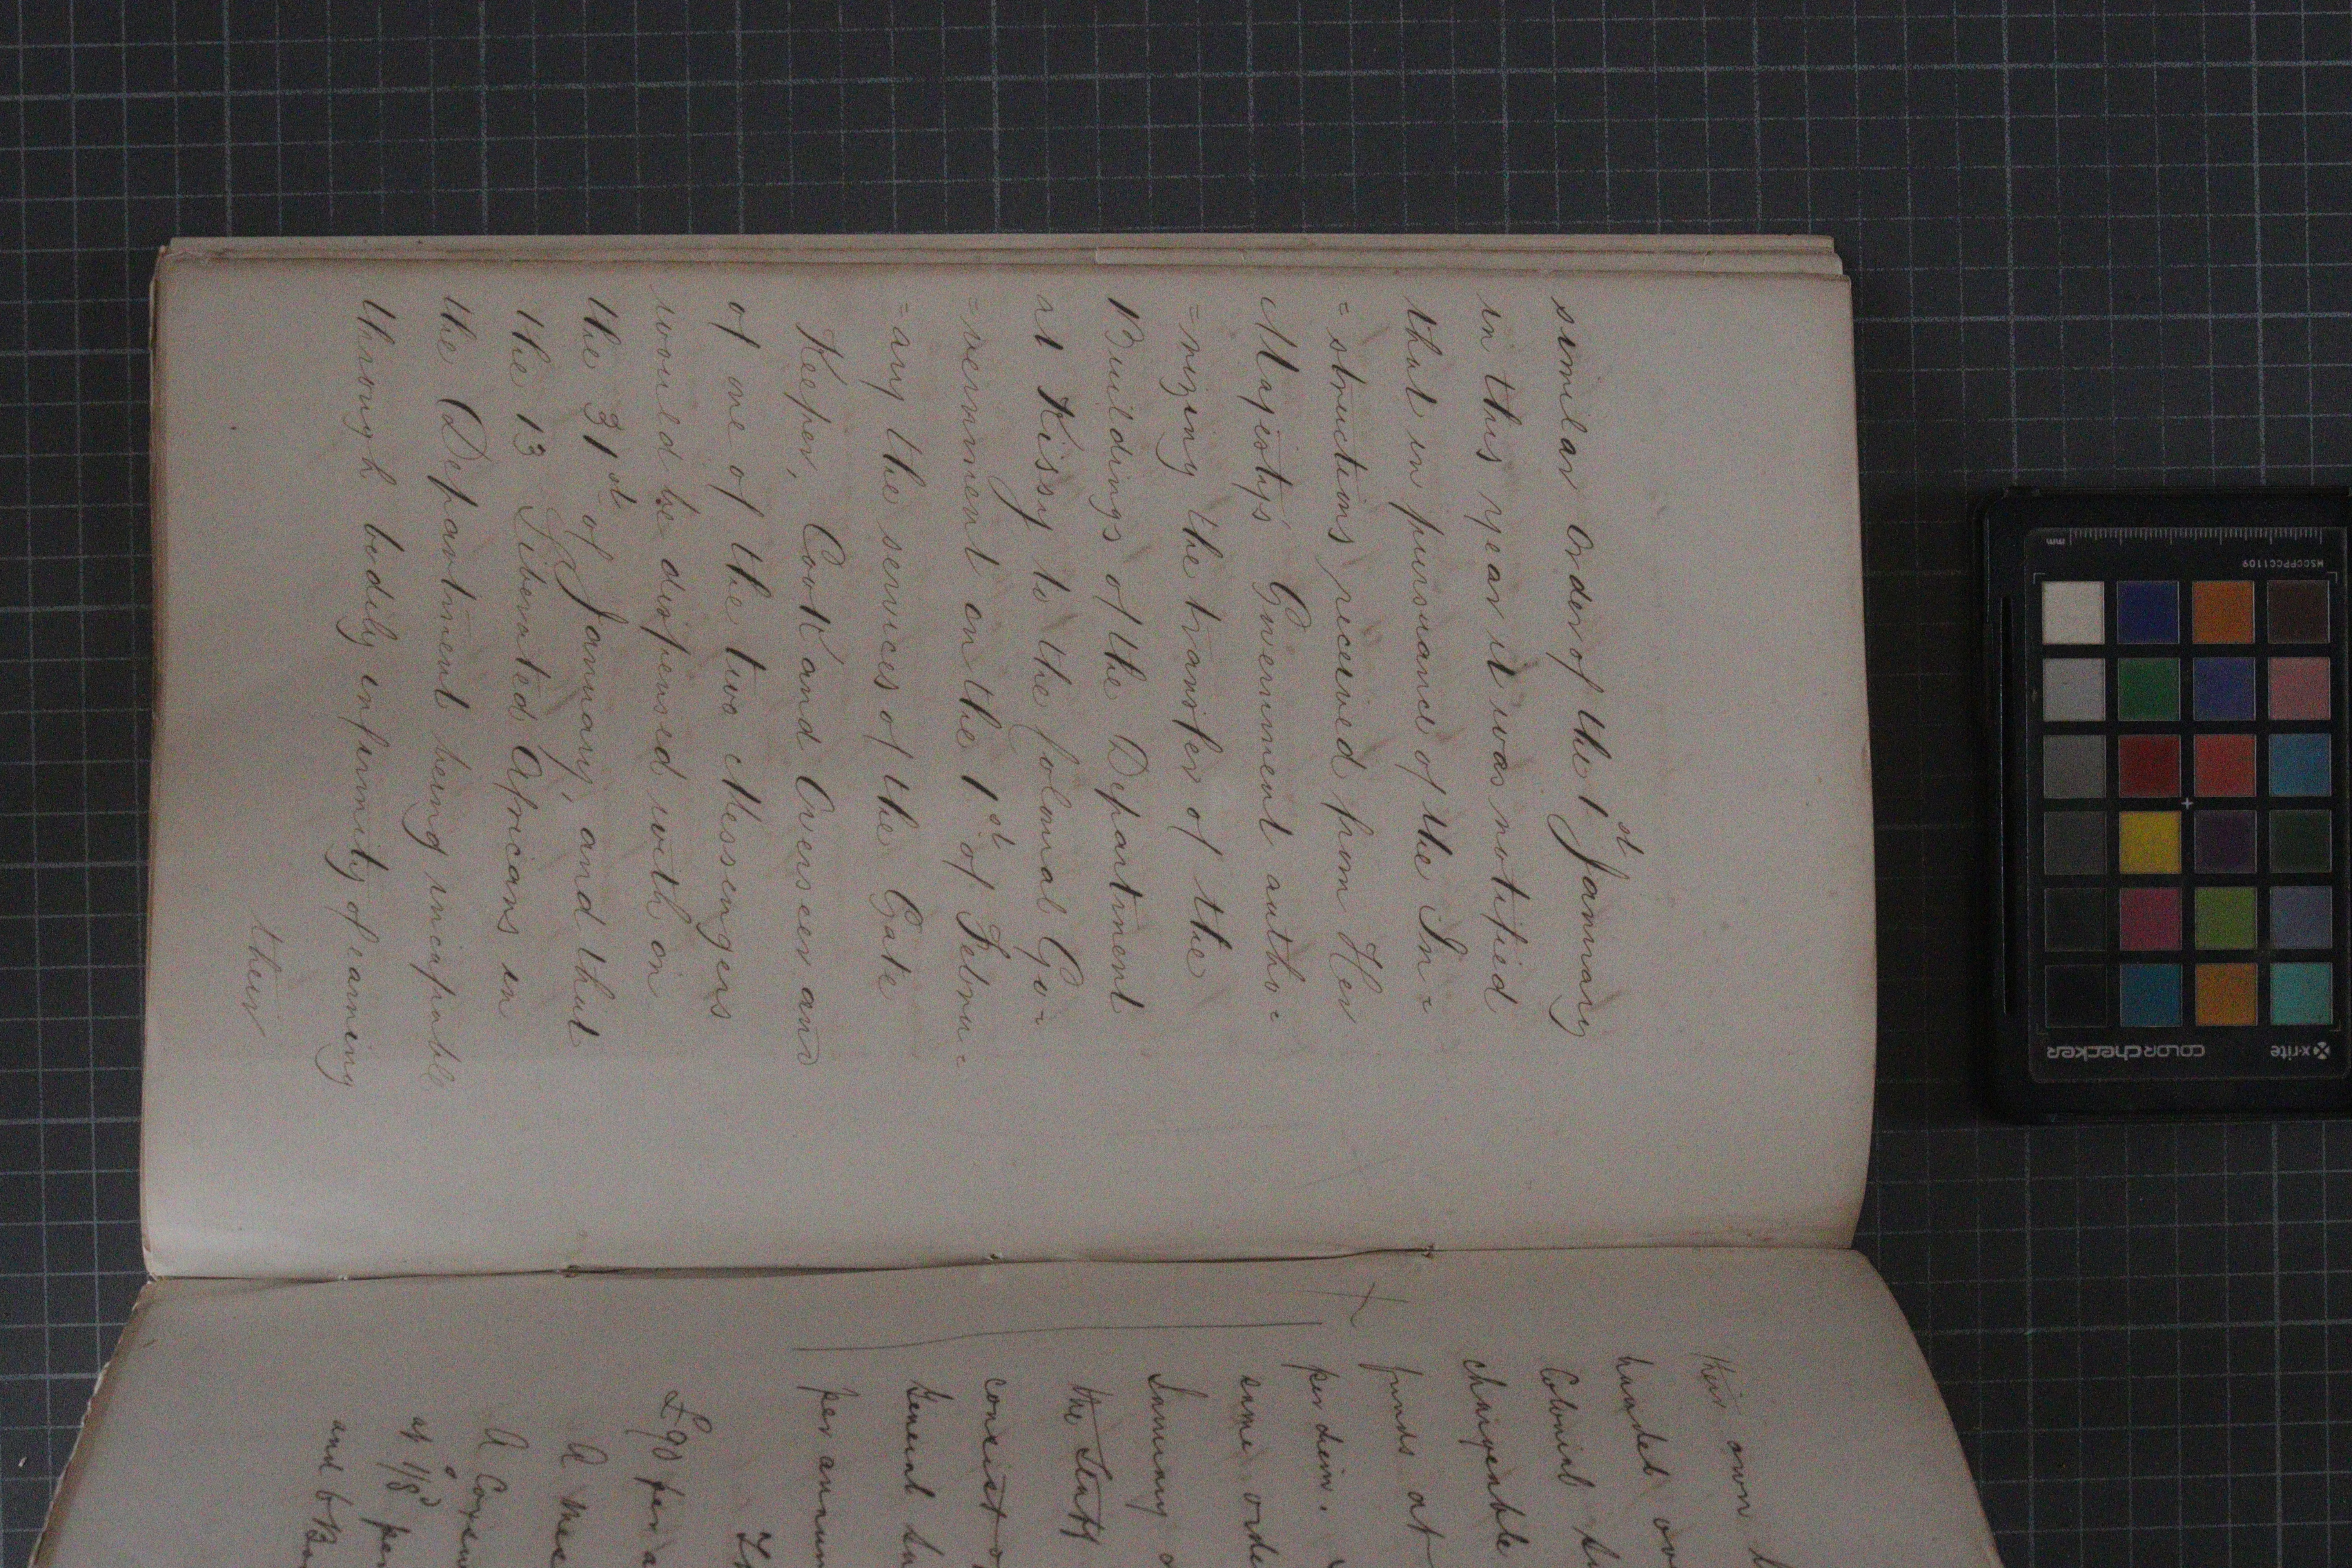 similar order of the 1st January
in this year it was notified
that in pursuance of the In=
=structions received from Her
Majesty's Government autho=
=rizing the transfer of the
Buildings of the Department
at Kissy to the Colonial Go=
=vernment on the 1st of Febru=
=ary the services of the Gate
Keeper, Cook and Overseer and
of one of the two Messengers
would be dispensed with on
the 31st of January, and that
the 13 Liberated Africans in
the Department being incapable
through bodily infirmity of earning
their
their own
handed
Colonial
chargeable
funds at
per diem.
same order
January
the Staff
consist
General
per annum
£90 per
A
A
at 1/8d per
and 6
x-rite
colorchecker
MSCCPPCC1109
mm